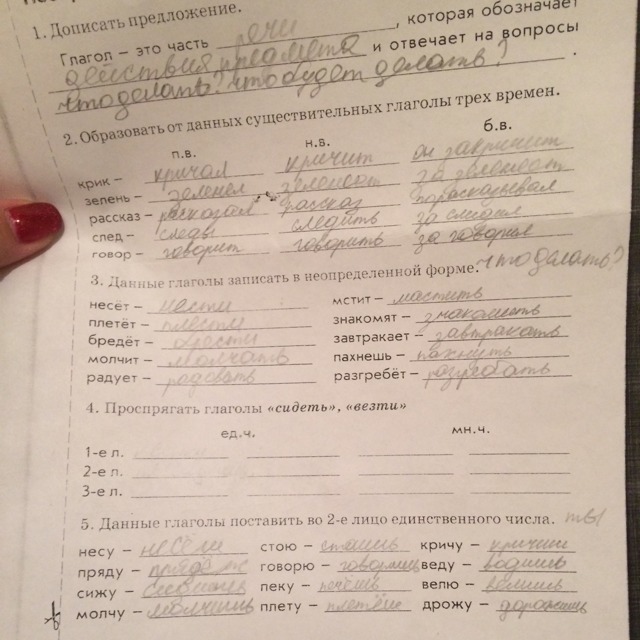 1. Дописать предложение.
Глагол – это часть речи, которая обозначает
действия предмета и отвечает на вопросы
что делать? что будет делать? .
2. Образовать от данных существительных глаголы трех времен.
п.в. н.в. б.в.
крик – кричал кричит он закричит
зелень – зеленел зеленеет за зеленеет
рассказ – рассказал рассказ
след – следить
говор – говорит говорить
3. Данные глаголы записать в неопределенной форме. что делать?
несёт – нести мстит – мастить
плетёт – плести знакомят – знакомить
бредёт – завтракает – завтракать
молчит – молчать пахнешь – пахнуть
радует – радовать разгребёт –
4. Проспрягать глаголы «сидеть», «везти»
ед.ч. мн.ч.
1-е л.
2-е л.
3-е л.
5. Данные глаголы поставить во 2-е лицо единственного числа. ты
несу – стою – кричу –
пряду – говорю – говоришь веду – водишь
сижу – пеку – печёшь велю – велишь
молчу – молчишь плету – дрожу –